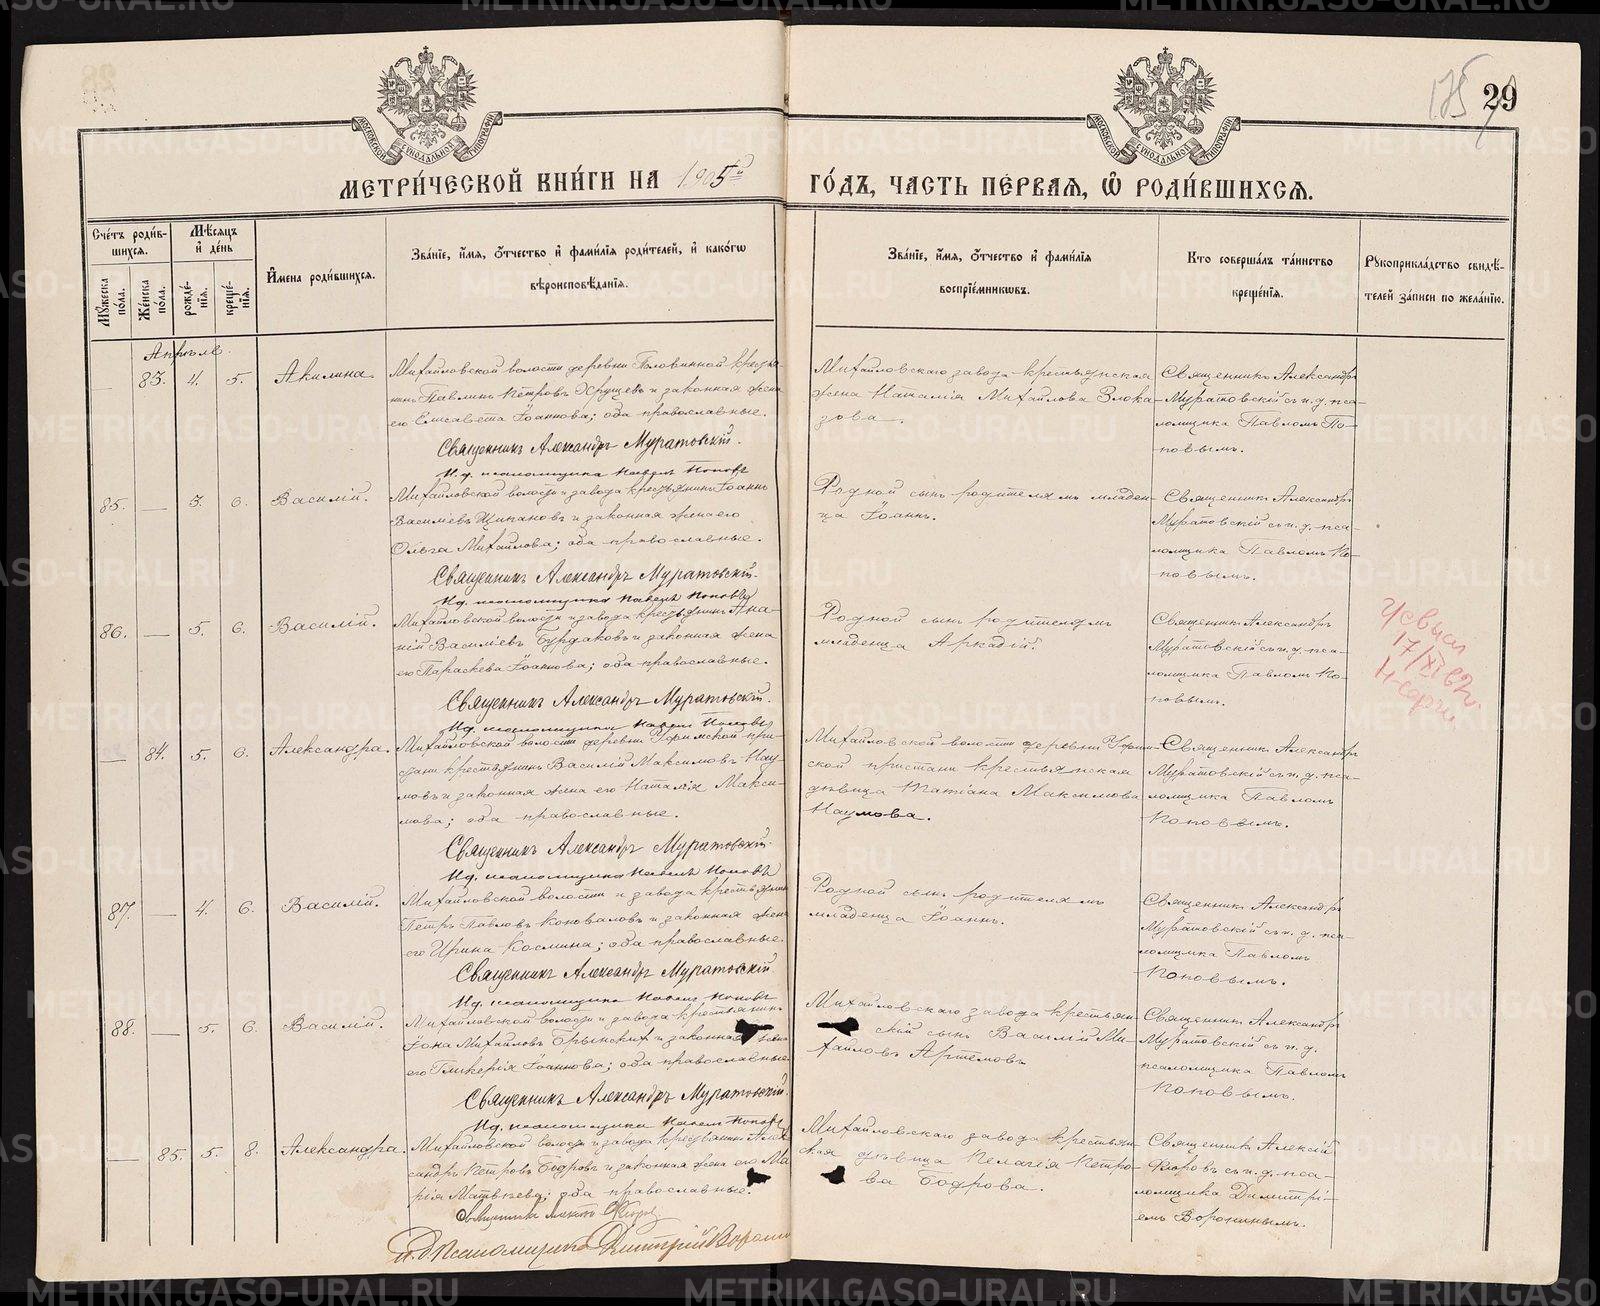 175
29
МЕТРИ́ЧЕСКОЙ КНИ́ГИ НА 1905й ГО́ДЪ, ЧАСТЬ ПЕ́РВАЯ, Ѡ РОДИ́ВШИХСЯ.
Сче́тъ роди́в-
шихся.
Мѣ́сяцъ
и де́нь
Мꙋ́жеска по́ла.
Же́нска по́ла.
рожде́-
нія.
креще́-
нія.
И́мена роди́вшихся.
Зва́ніе, и́мя, о́тчество и фами́лія роди́телей, и како́гѡ
вѣроисповѣ́данія.
Зва́ніе, и́мя, о́тчество и фами́лія
воспріе́мникѡвъ.
Кто соверша́лъ та́инство
креще́нія.
Рꙋкоприкла́дство свидѣ́-
телей за́писи по жела́нію.
Апрѣль.
— 83. 4. 5. Акилина.
Михайловской волости деревни Головинной крестья
нинъ Павлинъ Петровъ Хрущевъ и законная жена
его Елисавета Іоаннова; оба православные.
Священникъ Александръ Муратовскій.
И.д. псаломщика Павелъ Поповъ
Михайловскаго завода крестьянская
жена Наталія Михайлова Злока-
зова.
Священникъ Александръ
Муратовскій съ и.д. пса-
ломщика Павломъ По-
повымъ.
85. — 3. 6. Василій.
Михайловской волости и завода крестьянинъ Іоаннъ
Василіевъ Щипановъ и законная жена его
Ольга Михайлова; оба православные.
Священникъ Александръ Муратовскій.
И.д. псаломщика Павелъ Поповъ
Родной сынъ родителямъ младен-
ца Іоаннъ.
Священникъ Александръ
Муратовскій съ и.д. пса-
ломщика Павломъ По-
повымъ.
86. — 5. 6. Василій.
Михайловской волости и завода крестьянинъ Ана-
ній Василіевъ Бурдаковъ и законная жена
его Параскева Іоаннова; оба православные.
Священникъ Александръ Муратовскій.
И.д. псаломщика Павелъ Поповъ
Родной сынъ родителямъ
младенца Аркадій.
Священникъ Александръ
Муратовскій съ и.д. пса-
ломщика Павломъ По-
повымъ.
17/XI
— 84. 5. 6. Александра.
Михайловской волости деревни Уфимской при-
стани крестьянинъ Василій Максимовъ Нау-
мовъ и законная жена его Наталія Макси-
мова; оба православные.
Священникъ Александръ Муратовскій.
И.д. псаломщика Павелъ Поповъ
Михайловской волости деревни Уфим-
ской пристани крестьянская
дѣвица Татіана Максимова
Наумова.
Священникъ Александръ
Муратовскій съ и.д. пса-
ломщика Павломъ
Поповымъ.
87. — 4. 6. Василій.
Михайловской волости и завода крестьянинъ
Петръ Павловъ Коноваловъ и законная жена
его Ирина Космина; оба православные.
Священникъ Александръ Муратовскій.
И.д. псаломщика Павелъ Поповъ
Родной сынъ родителямъ
младенца Іоаннъ.
Священникъ Александръ
Муратовскій съ и.д. пса-
ломщика Павломъ
Поповымъ.
88. — 5. 6. Василій.
Михайловской волости и завода крестьянинъ
Іона Михайловъ Брынскихъ и законная жена
его Гликерія Іоаннова; оба православные.
Священникъ Александръ Муратовскій.
И.д. псаломщика Павелъ Поповъ
Михайловскаго завода крестьян-
скій сынъ Василій Ми-
хайловъ Артемовъ
Священникъ Александръ
Муратовскій съ и.д.
псаломщика Павломъ
Поповымъ.
— 85. 5. 8. Александра.
Михайловской волости и завода крестьянинъ Алек
сандръ Петровъ Бодровъ и законная жена его Ма
рія Матвѣева; оба православные.
Священникъ Алексѣй Флоровъ
и.д. Псаломщика Дмитрій Ворони
Михайловскаго завода крестьян-
ская дѣвица Пелагія Петро-
ва Бодрова.
Священникъ Алексій
Флоровъ съ и.д. пса-
ломщика Димитрі-
емъ Воронинымъ.
METRIKI.GASO-URAL.RU